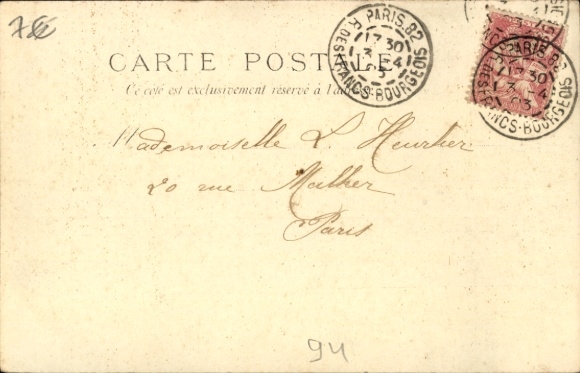 CARTE POSTALE
Ce côté est exclusivement réservé à l'ad
PARIS. 82
R. DES FRANCS-BOURGEOIS
17 30
3 4
03
PARIS. 82
R. DES FRANCS-BOURGEOIS
17 30
3 4
03
Mademoiselle L. Heurtier
20 rue Malher
Paris
94